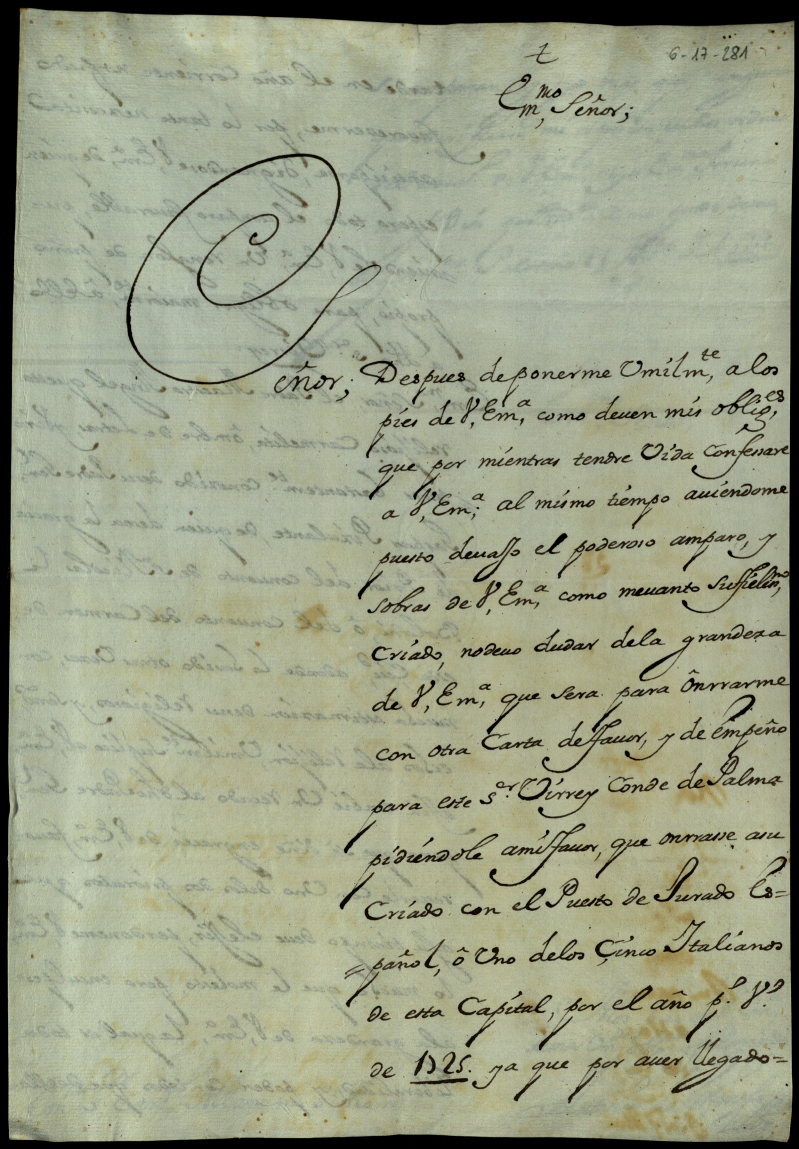 6-17-281
Em.mo Señor;
Señor; Despues de ponerme Vmilm.te, a los
pies de V, Em,a como deven mis oblig,es
que por mientras tendre Vida Confessare
a V, Em,a; al mismo tiempo aviendome
puesto devasso el poderoso amparo, y
sobras de V, Em,a como mevanto suffielm,mo
Criado, nodevo dudar dela grandeza
de V, Em,a que sera para ônrrarme
con otra Carta deffavor, y de empeño
para este s.or Virrey Conde de Palma
pidiéndole amiffavor, que onrrasse asu
Criado con el Puesto de Jurado Es=
=pañol, ô Vno delos Çinco Italianos
de esta Capital, por el año p.o V.o
de 1725. ya que por aver llegado=